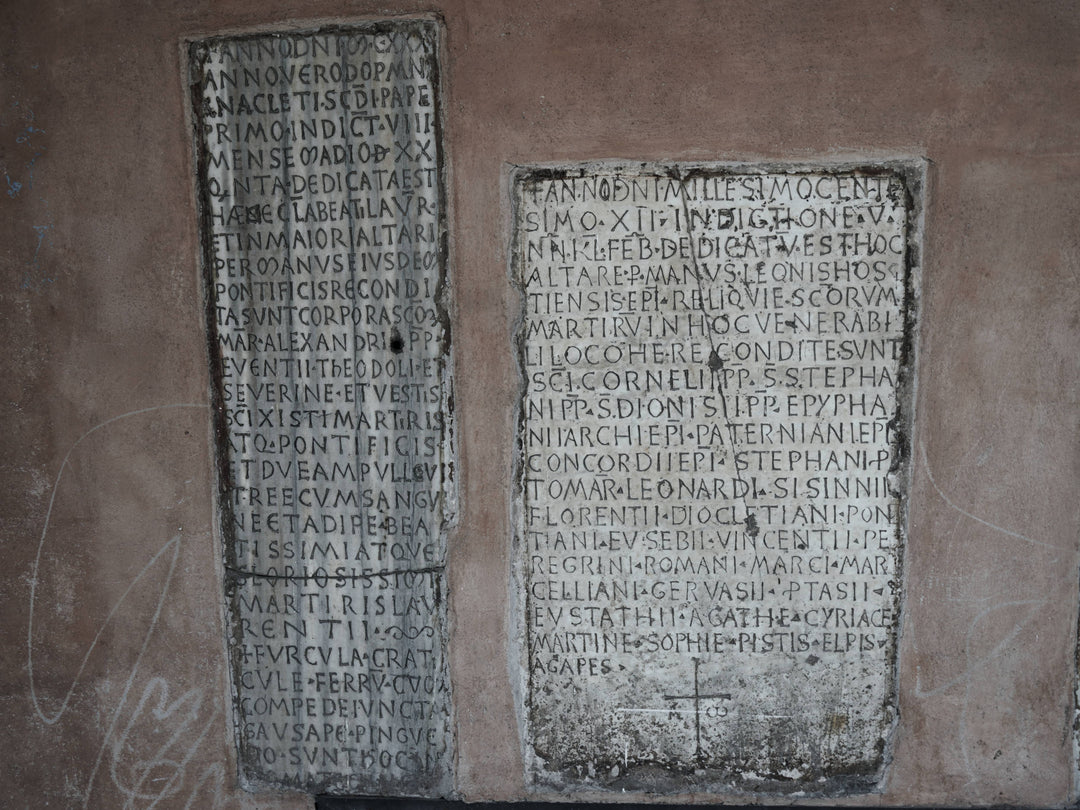 ANNO DNI M C XXX
ANNO VERO DOPM N
ENACLETI·SCDI·PAPE
PRIMO·INDICT·VIII·
MENSE MADIO D XX
QNTA·DEDICATA EST
HÆC ECLA BEATI LAVR·
ET IN MAIORI ALTARI
PER MANVS EIVSDEM
PONTIFICIS RECONDI
TA SVNT CORPORA SCOM
MAR·ALEXANDRI·PP·
EVENTII·THEODOLI·ET
SEVERINE·ET VESTIS
SCI XISTI MARTIRIS
ATQ·PONTIFICIS·
ET DVE AMPVLLE VI
TREE CVM SANGV
NE ET ADIPE BEA
TISSIMI ATQVE
GLORIOSISSIMI
MARTIRIS LAV
RENTII·
+FVRCVLA·CRATI
CVLE·FERRV·CVO
COMPEDE IVNCTA
GAVSAPE·PINGVE
SVNT HOC
+ANNO DNI MILLESIMO CENTE
SIMO·XII·INDICTIONE·V·
NN·KL·FEB·DEDICATV EST HOC
ALTARE·P·MANVS·LEONIS HOS
TIENSIS·EPI·RELIQVIE·SCORVM
MARTIRV IN HOC VENERABI
LI LOCO HERE CONDITE·SVNT
SCI·CORNELII PP·S·STEPHA
NI PP·S·DIONISII·PP·EPYPHA
NII ARCHIEPI·PATERNIANI·EPI
CONCORDII EPI·STEPHANI·P
TOMAR·LEONARDI·SISINNII
FLORENTII·DIOCLETIANI·PON
TIANI·EVSEBII·VINCENTII·PE
REGRINI·ROMANI·MARCI·MAR
CELLIANI·GERVASII·PTASII·
EVSTATHII·AGATHE·CYRIACE
MARTINE·SOPHIE·PISTIS·ELPIS·
AGAPES·
ω